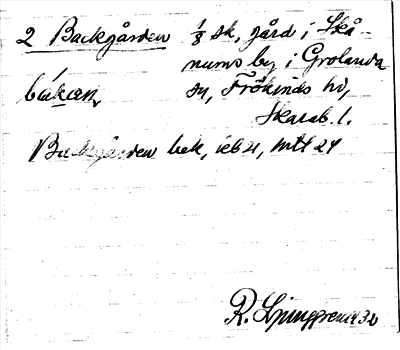 2 Backgården 1/8 sk, gård i Skå-
nums by i Grolanda
bákan, sn, Frökinds hd,
Skarab. l.
Backgården bek, ieb 21, mtl 24
R. Ljunggren 1930